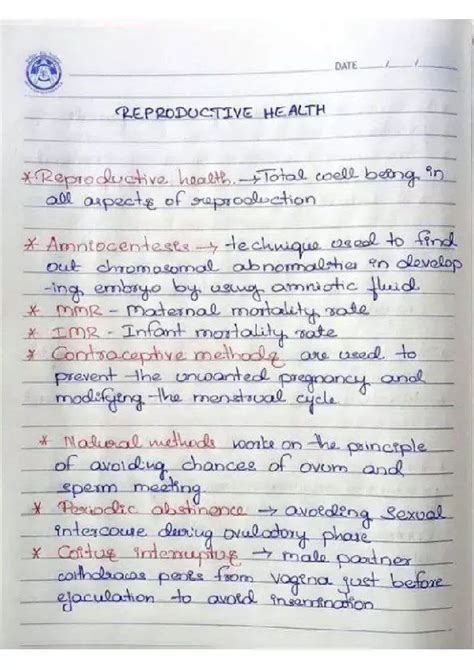 DATE / /
REPRODUCTIVE HEALTH
* Reproductive health → Total well being in
all aspects of reproduction
* Amniocentesis → technique used to find
out chromosomal abnormalities in develop
-ing embryo by using amniotic fluid
* MMR - Maternal mortality rate
* IMR - Infant mortality rate
* Contraceptive methods are used to
prevent the unwanted pregnancy and
modifying the menstrual cycle
* Natural methods works on the principle
of avoiding chances of ovum and
sperm meeting.
* Periodic abstinence → avoiding sexual
intercouse during ovulatory phase
* Coitus interruptus → male partner
withdraws penis from vagina just before
ejaculation to avoid insemination